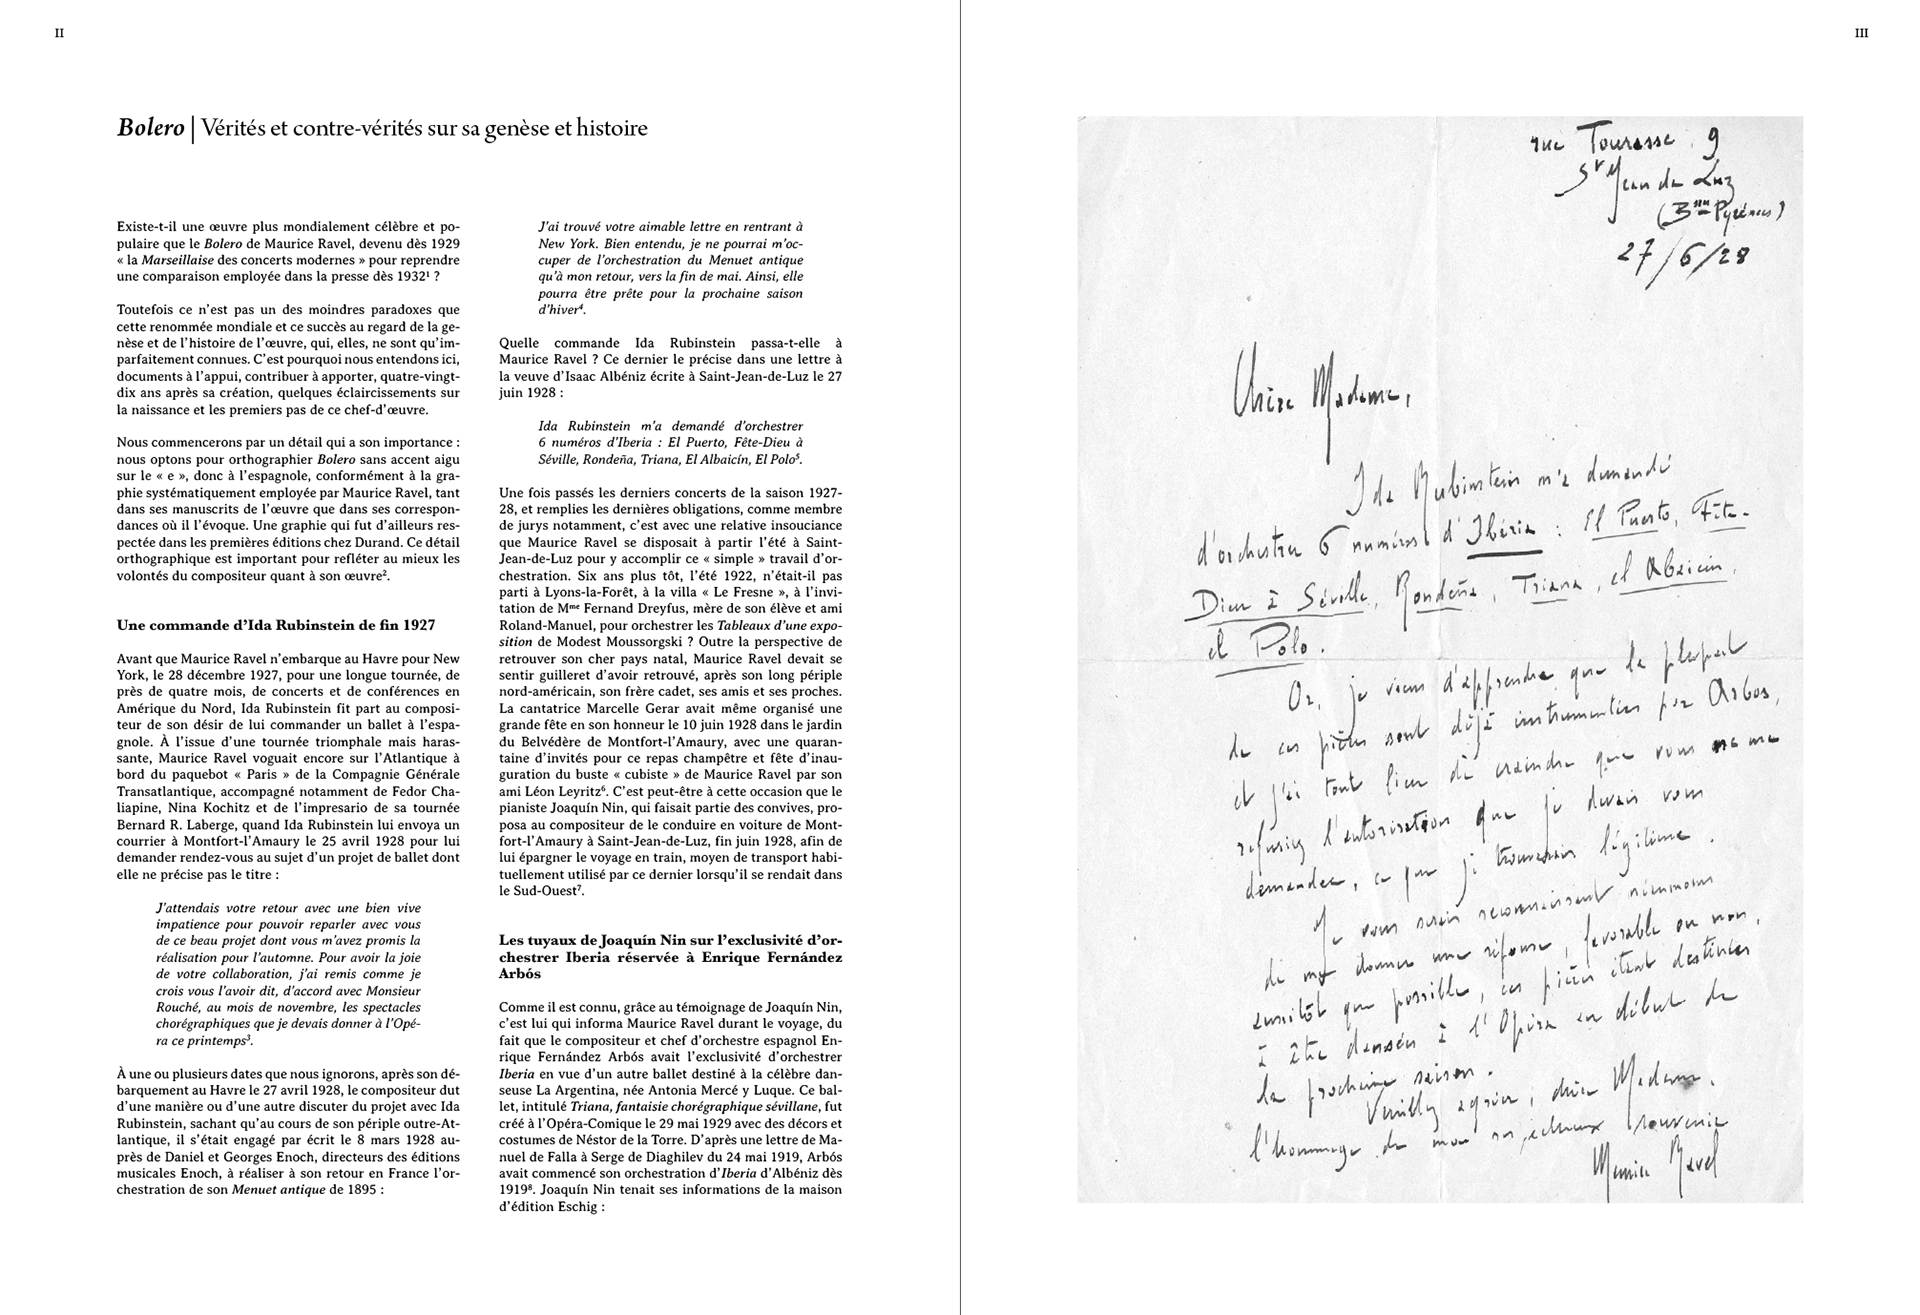 II
Bolero | Vérités et contre-vérités sur sa genèse et histoire
Existe-t-il une œuvre plus mondialement célèbre et po-
pulaire que le Bolero de Maurice Ravel, devenu dès 1929
« la Marseillaise des concerts modernes » pour reprendre
une comparaison employée dans la presse dès 1932¹ ?
Toutefois ce n’est pas un des moindres paradoxes que
cette renommée mondiale et ce succès au regard de la ge-
nèse et de l’histoire de l’œuvre, qui, elles, ne sont qu’im-
parfaitement connues. C’est pourquoi nous entendons ici,
documents à l’appui, contribuer à apporter, quatre-vingt-
dix ans après sa création, quelques éclaircissements sur
la naissance et les premiers pas de ce chef-d’œuvre.
Nous commencerons par un détail qui a son importance :
nous optons pour orthographier Bolero sans accent aigu
sur le « e », donc à l’espagnole, conformément à la gra-
phie systématiquement employée par Maurice Ravel, tant
dans ses manuscrits de l’œuvre que dans ses correspon-
dances où il l’évoque. Une graphie qui fut d’ailleurs res-
pectée dans les premières éditions chez Durand. Ce détail
orthographique est important pour refléter au mieux les
volontés du compositeur quant à son œuvre².
Une commande d’Ida Rubinstein de fin 1927
Avant que Maurice Ravel n’embarque au Havre pour New
York, le 28 décembre 1927, pour une longue tournée, de
près de quatre mois, de concerts et de conférences en
Amérique du Nord, Ida Rubinstein fit part au composi-
teur de son désir de lui commander un ballet à l’espa-
gnole. À l’issue d’une tournée triomphale mais haras-
sante, Maurice Ravel voguait encore sur l’Atlantique à
bord du paquebot « Paris » de la Compagnie Générale
Transatlantique, accompagné notamment de Fedor Cha-
liapine, Nina Kochitz et de l’impresario de sa tournée
Bernard R. Laberge, quand Ida Rubinstein lui envoya un
courrier à Montfort-l’Amaury le 25 avril 1928 pour lui
demander rendez-vous au sujet d’un projet de ballet dont
elle ne précise pas le titre :
J’attendais votre retour avec une bien vive
impatience pour pouvoir reparler avec vous
de ce beau projet dont vous m’avez promis la
réalisation pour l’automne. Pour avoir la joie
de votre collaboration, j’ai remis comme je
crois vous l’avoir dit, d’accord avec Monsieur
Rouché, au mois de novembre, les spectacles
chorégraphiques que je devais donner à l’Opé-
ra ce printemps³.
À une ou plusieurs dates que nous ignorons, après son dé-
barquement au Havre le 27 avril 1928, le compositeur dut
d’une manière ou d’une autre discuter du projet avec Ida
Rubinstein, sachant qu’au cours de son périple outre-At-
lantique, il s’était engagé par écrit le 8 mars 1928 au-
près de Daniel et Georges Enoch, directeurs des éditions
musicales Enoch, à réaliser à son retour en France l’or-
chestration de son Menuet antique de 1895 :
J’ai trouvé votre aimable lettre en rentrant à
New York. Bien entendu, je ne pourrai m’oc-
cuper de l’orchestration du Menuet antique
qu’à mon retour, vers la fin de mai. Ainsi, elle
pourra être prête pour la prochaine saison
d’hiver⁴.
Quelle commande Ida Rubinstein passa-t-elle à
Maurice Ravel ? Ce dernier le précise dans une lettre à
la veuve d’Isaac Albéniz écrite à Saint-Jean-de-Luz le 27
juin 1928 :
Ida Rubinstein m’a demandé d’orchestrer
6 numéros d’Iberia : El Puerto, Fête-Dieu à
Séville, Rondeña, Triana, El Albaicín, El Polo⁵.
Une fois passés les derniers concerts de la saison 1927-
28, et remplies les dernières obligations, comme membre
de jurys notamment, c’est avec une relative insouciance
que Maurice Ravel se disposait à partir l’été à Saint-
Jean-de-Luz pour y accomplir ce « simple » travail d’or-
chestration. Six ans plus tôt, l’été 1922, n’était-il pas
parti à Lyons-la-Forêt, à la villa « Le Fresne », à l’invi-
tation de Mᵐᵉ Fernand Dreyfus, mère de son élève et ami
Roland-Manuel, pour orchestrer les Tableaux d’une expo-
sition de Modest Moussorgski ? Outre la perspective de
retrouver son cher pays natal, Maurice Ravel devait se
sentir guilleret d’avoir retrouvé, après son long périple
nord-américain, son frère cadet, ses amis et ses proches.
La cantatrice Marcelle Gerar avait même organisé une
grande fête en son honneur le 10 juin 1928 dans le jardin
du Belvédère de Montfort-l’Amaury, avec une quaran-
taine d’invités pour ce repas champêtre et fête d’inau-
guration du buste « cubiste » de Maurice Ravel par son
ami Léon Leyritz⁶. C’est peut-être à cette occasion que le
pianiste Joaquín Nin, qui faisait partie des convives, pro-
posa au compositeur de le conduire en voiture de Mont-
fort-l’Amaury à Saint-Jean-de-Luz, fin juin 1928, afin de
lui épargner le voyage en train, moyen de transport habi-
tuellement utilisé par ce dernier lorsqu’il se rendait dans
le Sud-Ouest⁷.
Les tuyaux de Joaquín Nin sur l’exclusivité d’or-
chestrer Iberia réservée à Enrique Fernández
Arbós
Comme il est connu, grâce au témoignage de Joaquín Nin,
c’est lui qui informa Maurice Ravel durant le voyage, du
fait que le compositeur et chef d’orchestre espagnol En-
rique Fernández Arbós avait l’exclusivité d’orchestrer
Iberia en vue d’un autre ballet destiné à la célèbre dan-
seuse La Argentina, née Antonia Mercé y Luque. Ce bal-
let, intitulé Triana, fantaisie chorégraphique sévillane, fut
créé à l’Opéra-Comique le 29 mai 1929 avec des décors et
costumes de Néstor de la Torre. D’après une lettre de Ma-
nuel de Falla à Serge de Diaghilev du 24 mai 1919, Arbós
avait commencé son orchestration d’Iberia d’Albéniz dès
1919⁸. Joaquín Nin tenait ses informations de la maison
d’édition Eschig :
III
rue Tourasse 9
Sᵗ Jean de Luz
(Bˢˢᵉˢ Pyrénées)
27/6/28
Chère Madame,
Ida Rubinstein m'a demandé
d'orchestrer 6 numéros d'Ibéria : El Puerto, Fête-
Dieu à Séville, Rondeña, Triana, el Abaicin,
el Polo.
Or, je viens d'apprendre que la plupart
de ces pièces sont déjà instrumentées par Arbos,
et j'ai tout lieu de craindre que vous ne me
refusiez l'autorisation que je devais vous
demander, ce que je trouverais légitime.
Je vous serais reconnaissant néanmoins
de me donner une réponse, favorable ou non,
aussitôt que possible, ces pièces étant destinées
à être dansées à l'Opéra au début de
la prochaine saison.
Veuillez agréer, chère Madame,
l'hommage de mon respectueux souvenir
Maurice Ravel